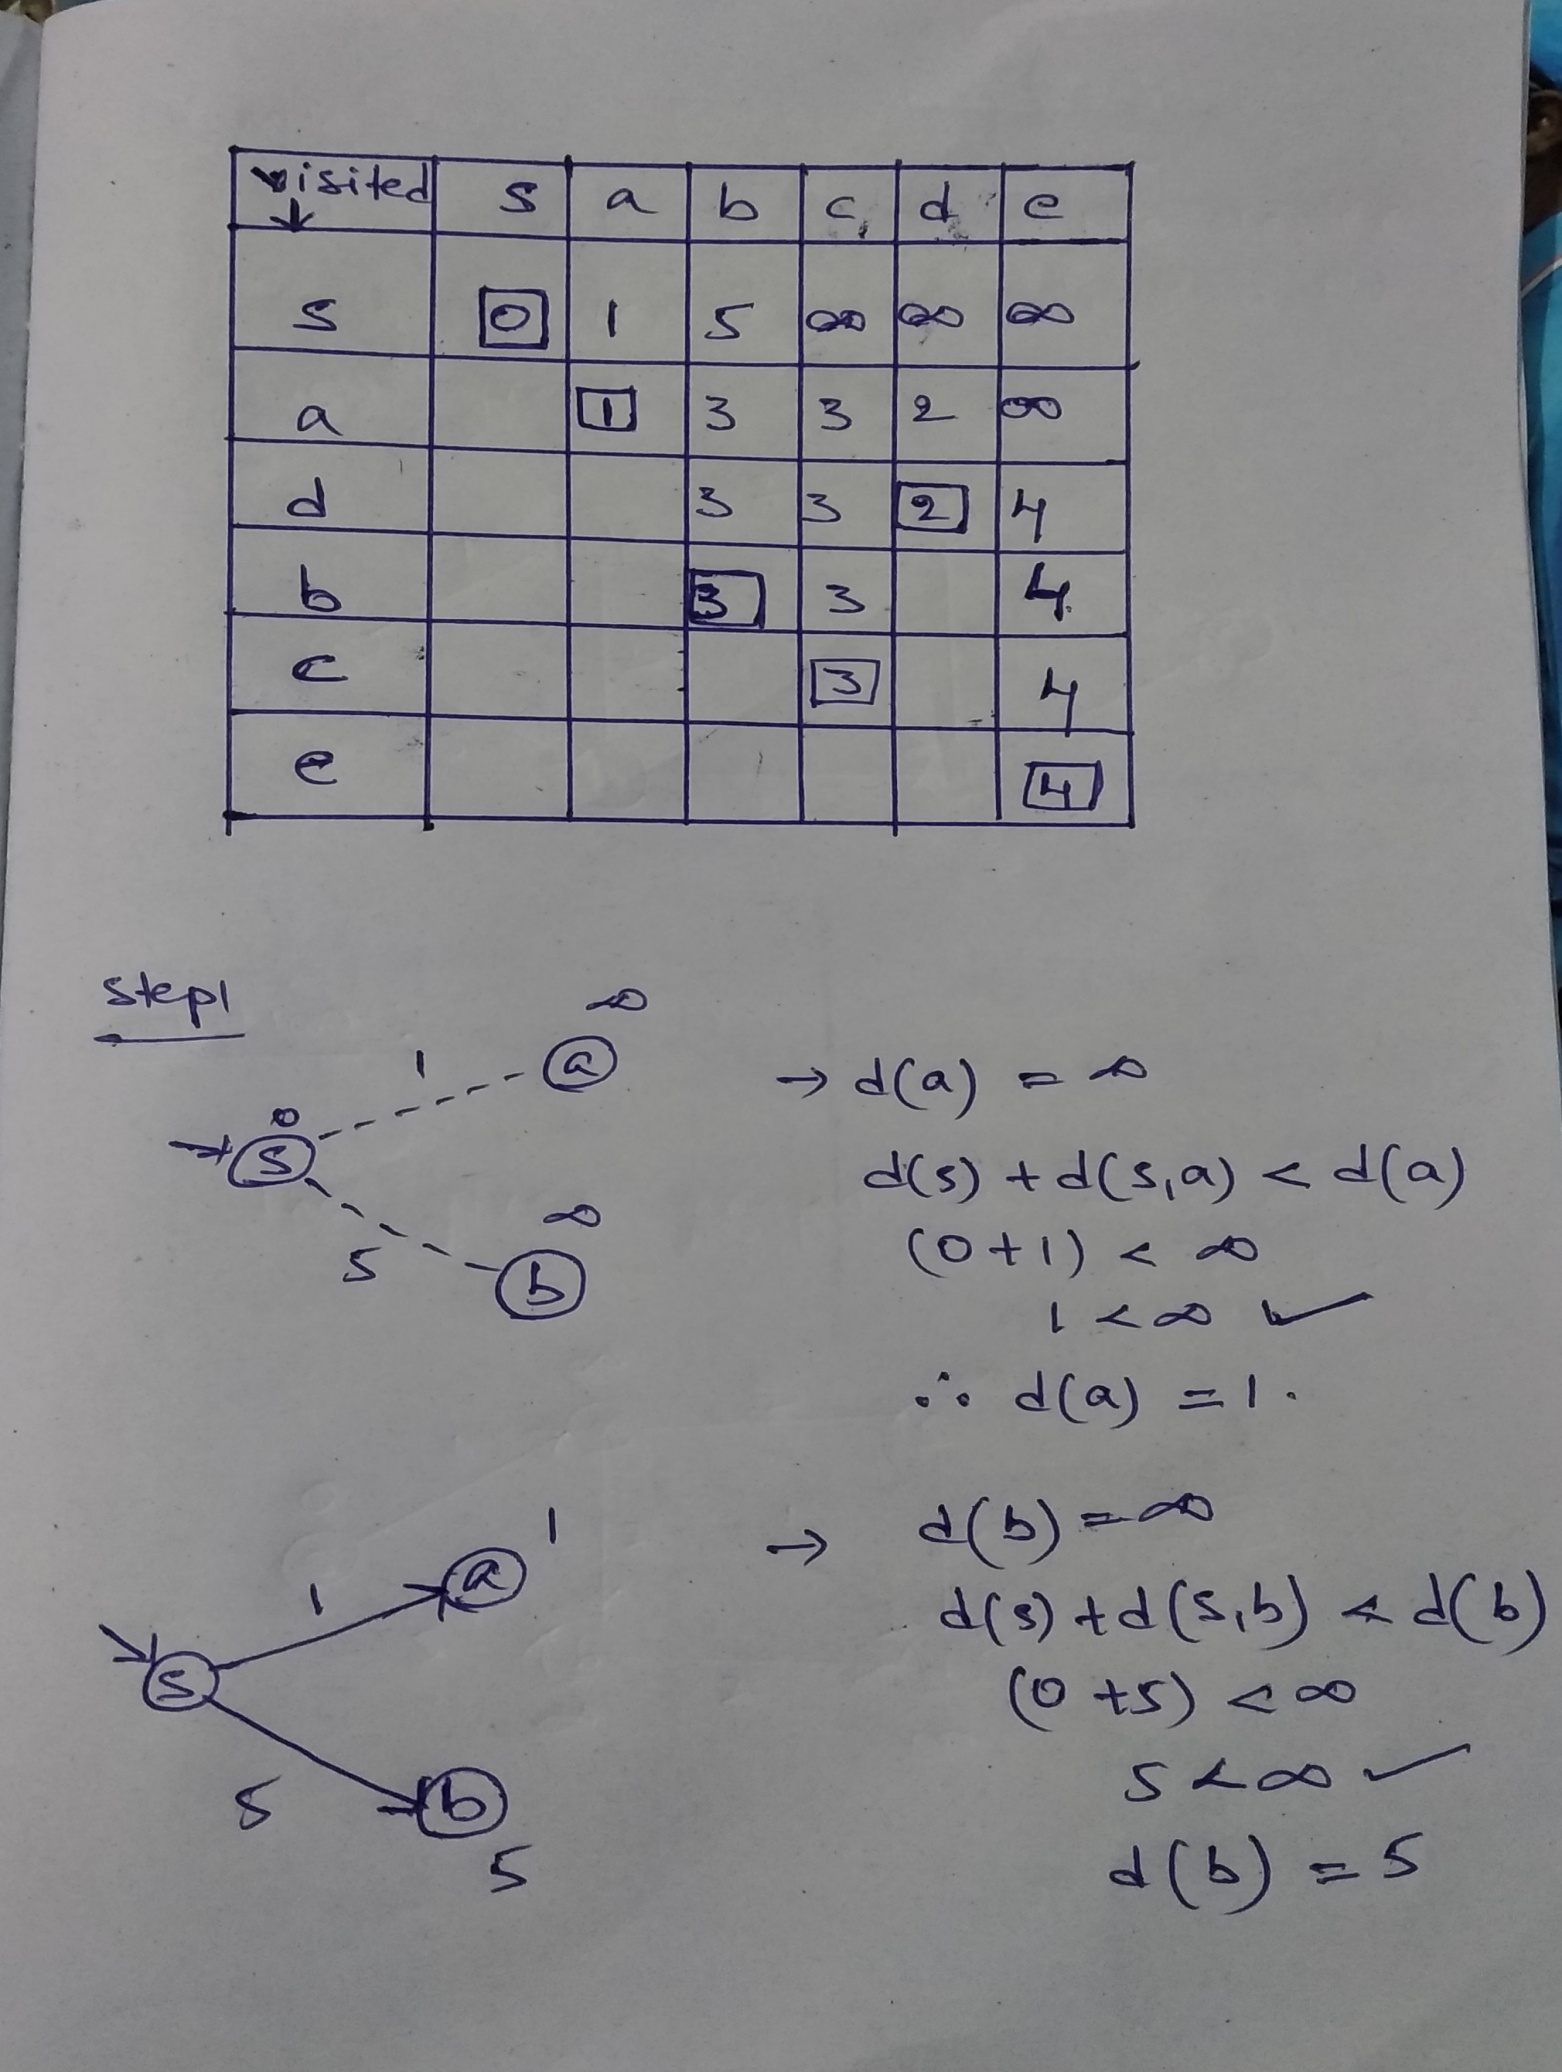 visited s a b c d e
↓
s 0 1 5 ∞ ∞ ∞
a 1 3 3 2 ∞
d 3 3 2 4
b 3 3 4
c 3 4
e 4
step1
∞
1 a
0
s
∞
5 b
→ d(a) = ∞
d(s) + d(s,a) < d(a)
(0+1) < ∞
1 < ∞ ✓
∴ d(a) = 1.
1
1 a
s
5 b
5
→ d(b) = ∞
d(s) + d(s,b) < d(b)
(0+5) < ∞
5 < ∞ ✓
d(b) = 5